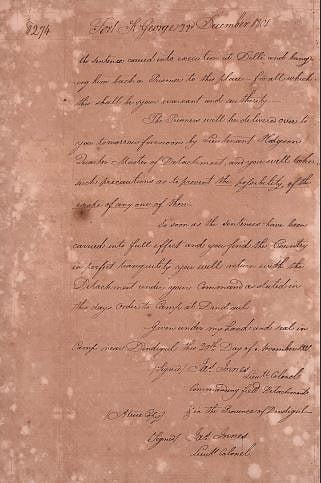 8274
Fort St George 3rd December 1801
the Sentences carried into execution at Dille and bring-
ing him back a Prisoner to this place – for all which
this shall be your warrant and authority.
The Prisoners will be delivered over to
you tomorrow forenoon by Lieutenant Hodgson
Quarter Master of Detachment, and you will take
such precautions as to prevent the possibility, of the
escape of any one of them.
So soon as the Sentences have been
carried into full effect and you find the Country
in perfect tranquility you will return with the
Detachment under your Command as stated in
this days order to Camp at Dindigul
Given under my hand and seal in
Camp near Dindigul this 20th Day of November 1801
(Signed) Jas. Innes
Lieut. Colonel
Commanding Field Detachment
in the Province of Dindigul
(Signed) Jas. Innes
Lieut. Colonel